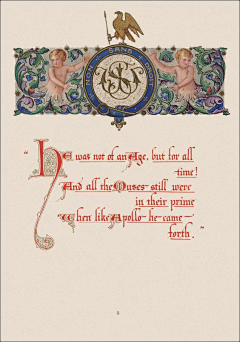 NON SANS DROICT
WS
"He was not of an Age, but for all
time!
And all the Muses still were
in their prime
When like Apollo he came
forth."